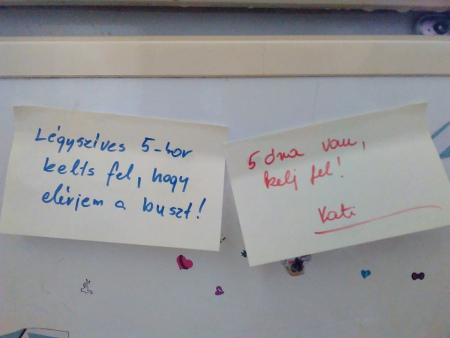 Légyszives 5-kor
kelts fel, hogy
elérjem a buszt!
5 óra van,
kelj fel!
Kati